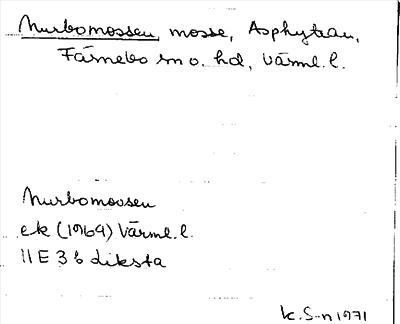 Nurbomossen, mosse, Asphyttan,
Färnebo sn o. hd, Värml. l.
Nurbomossen
ek (1969) Värml. l.
11 E 3 b Liksta
K. S-n 1971